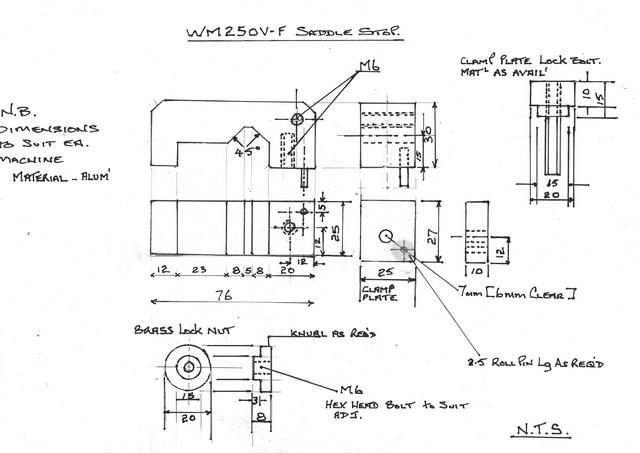 WM250V-F SADDLE STOP.
M6
CLAMP PLATE LOCK BOLT.
MATL AS AVAIL'
N.B.
DIMENSIONS
TO SUIT EA.
MACHINE
MATERIAL - ALUM'
45°
30
15
10
15
15
20
5
12
25
12
12
23
8
5
8
20
76
27
25
CLAMP
PLATE
10
12
7mm [6mm CLEAR]
BRASS LOCK NUT
KNURL AS REQ'D
2.5 ROLL PIN LG AS REQ'D
15
20
3
8
M6
HEX HEAD BOLT TO SUIT
ADJ.
N.T.S.